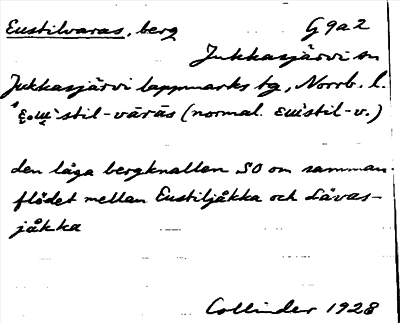 Eustilvaras, berg G 9a2
Jukkasjärvi sn
Jukkasjärvi lappmarks tg, Norrb. l.
-vāràs (normal. -v.)
den låga bergknallen SO om samman-
flödet mellan Eustiljåkka och Lävas-
jåkka
Collinder 1928